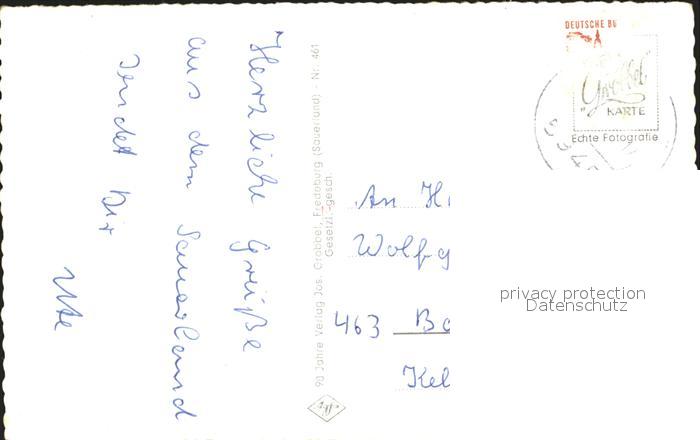 Herzliche Grüße
aus dem Sauerland
sendet Dir
Ute
90 Jahre Verlag Jos. Grobbel, Fredeburg (Sauerland) - Nr. 461
Gesetzl. gesch.
DEUTSCHE BU
Grobbel
KARTE
Echte Fotografie
An H
Wolfg
463 Bo
Kel
privacy protection
Datenschutz